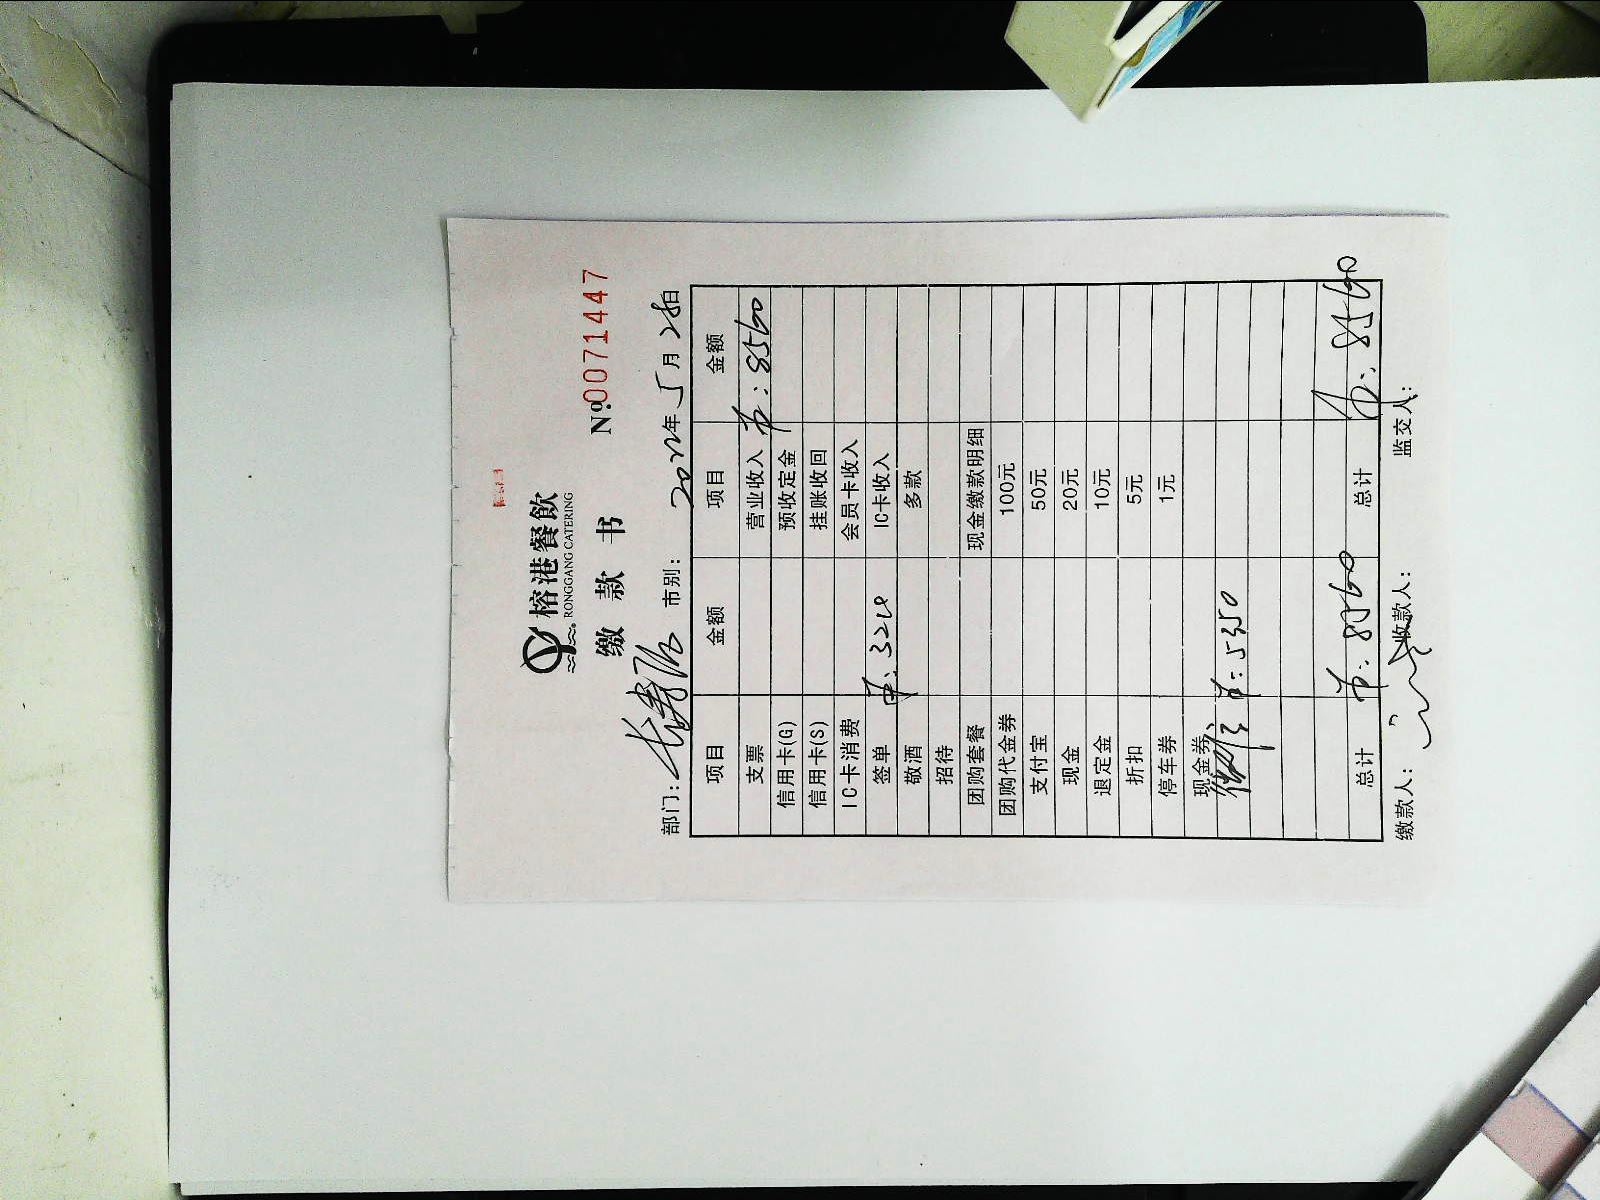 榕港餐飲
RONGGANG CATERING
缴 款 书 №0071447
部门: 市别: 2022年5月 日
项目 金额 项目 金额
支票 营业收入 : 8560
信用卡(G) 预收定金
信用卡(S) 挂账收回
IC卡消费 会员卡收入
签单 : 3210 IC卡收入
敬酒 多款
招待
团购套餐 现金缴款明细
团购代金券 100元
支付宝 50元
现金 20元
退定金 10元
折扣 5元
停车券 1元
现金券
微信 : 5350
总计 : 8560 总计 : 8560
缴款人: 收款人: 监交人: